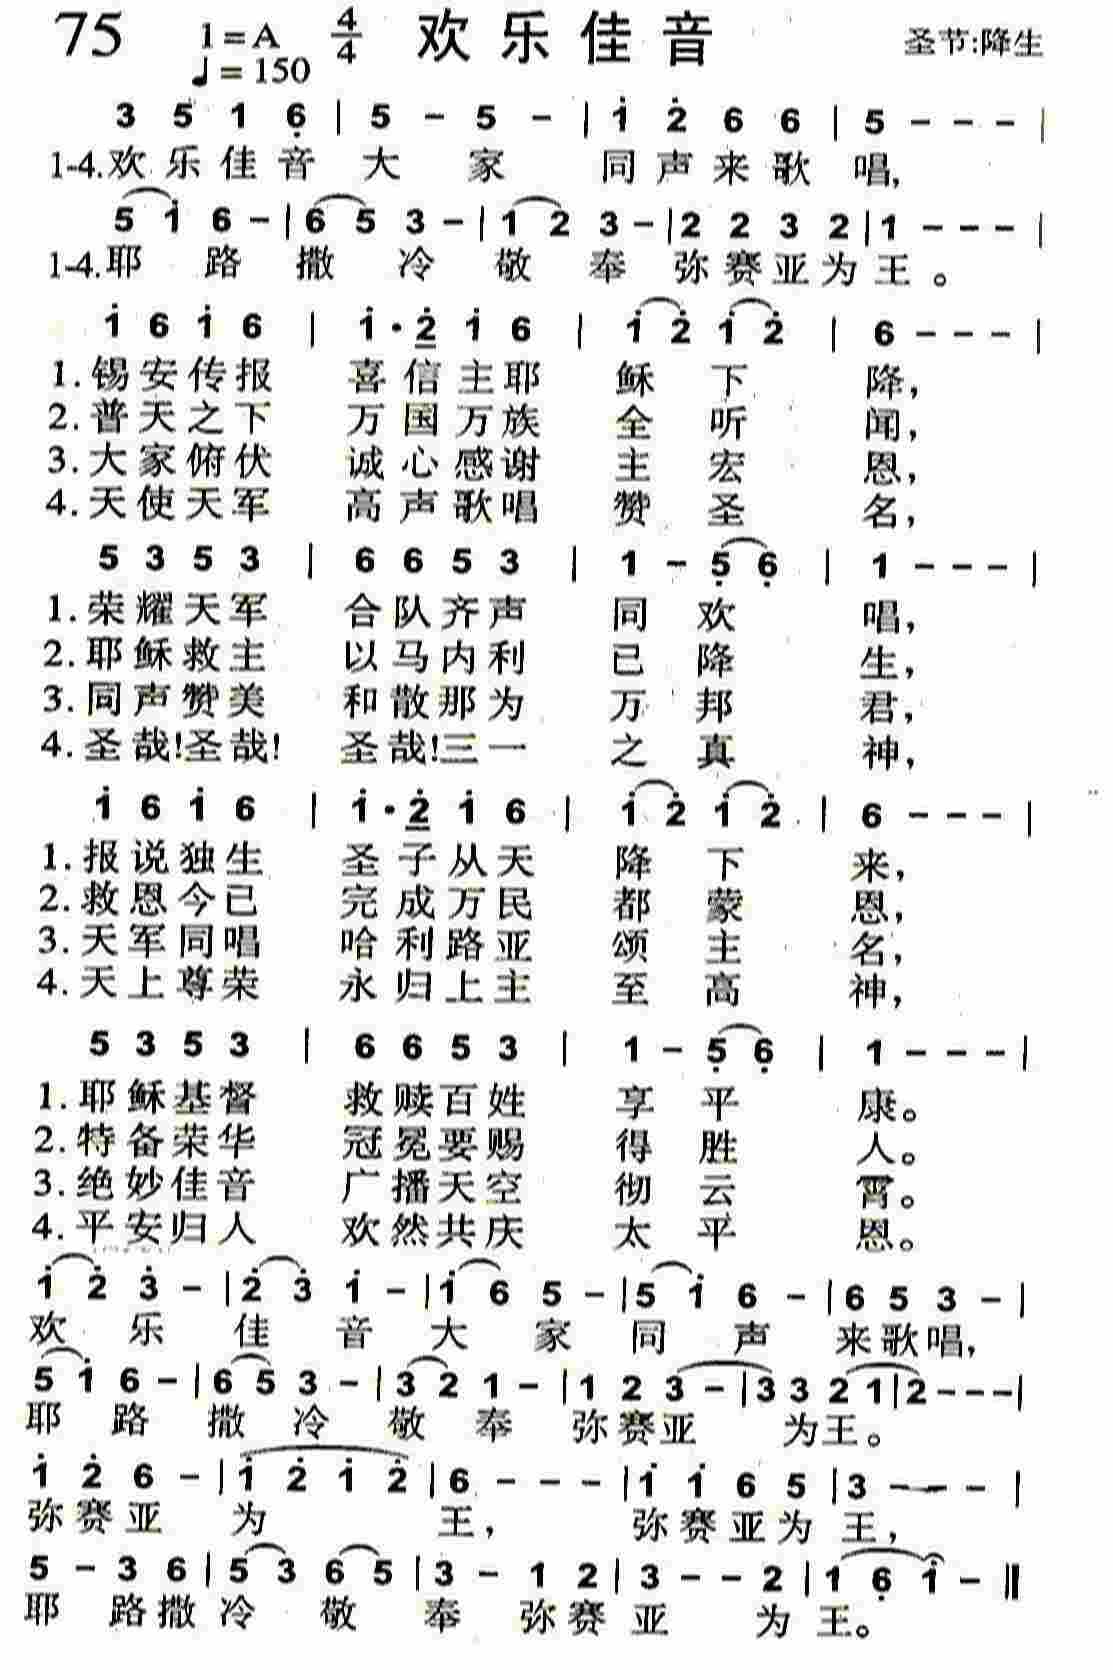 75 1=A 4/4 欢乐佳音 圣节:降生
♩=150
3 5 1 6̣ | 5 - 5 - | 1̇ 2̇ 6 6 | 5 - - - |
1-4.欢乐佳音大家同声来歌唱,
5 1̇ 6 - | 6 5 3 - | 1 2 3 - | 2 2 3 2 | 1 - - - |
1-4.耶路撒冷敬奉弥赛亚为王。
1̇ 6 1̇ 6 | 1̇ · 2̇ 1̇ 6 | 1̇ 2̇ 1̇ 2̇ | 6 - - - |
1.锡安传报 喜信主耶 稣下降,
2.普天之下 万国万族 全听闻,
3.大家俯伏 诚心感谢 主宏恩,
4.天使天军 高声歌唱 赞圣名,
5 3 5 3 | 6 6 5 3 | 1 - 5̣ 6̣ | 1 - - - |
1.荣耀天军 合队齐声 同欢唱,
2.耶稣救主 以马内利 已降生,
3.同声赞美 和散那为 万邦君,
4.圣哉!圣哉! 圣哉!三一 之真神,
1̇ 6 1̇ 6 | 1̇ · 2̇ 1̇ 6 | 1̇ 2̇ 1̇ 2̇ | 6 - - - |
1.报说独生 圣子从天 降下来,
2.救恩今已 完成万民 都蒙恩,
3.天军同唱 哈利路亚 颂主名,
4.天上尊荣 永归上主 至高神,
5 3 5 3 | 6 6 5 3 | 1 - 5̣ 6̣ | 1 - - - |
1.耶稣基督 救赎百姓 享平康。
2.特备荣华 冠冕要赐 得胜人。
3.绝妙佳音 广播天空 彻云霄。
4.平安归人 欢然共庆 太平恩。
1̇ 2̇ 3̇ - | 2̇ 3̇ 1̇ - | 1̇ 6 5 - | 5 1̇ 6 - | 6 5 3 - |
欢乐佳音大家同声来歌唱,
5 1̇ 6 - | 6 5 3 - | 3 2 1 - | 1 2 3 - | 3 3 2 1 | 2 - - - |
耶路撒冷敬奉弥赛亚为王。
1̇ 2̇ 6 - | 1̇ 2̇ 1̇ 2̇ | 6 - - - | 1̇ 1̇ 6 5 | 3 - - - |
弥赛亚为王,弥赛亚为王,
5 - 3 6 | 5 3 6 5 | 3 - 1 2 | 3 - - 2 | 1 6̣ 1̇ - ‖
耶路撒冷敬奉弥赛亚为王。